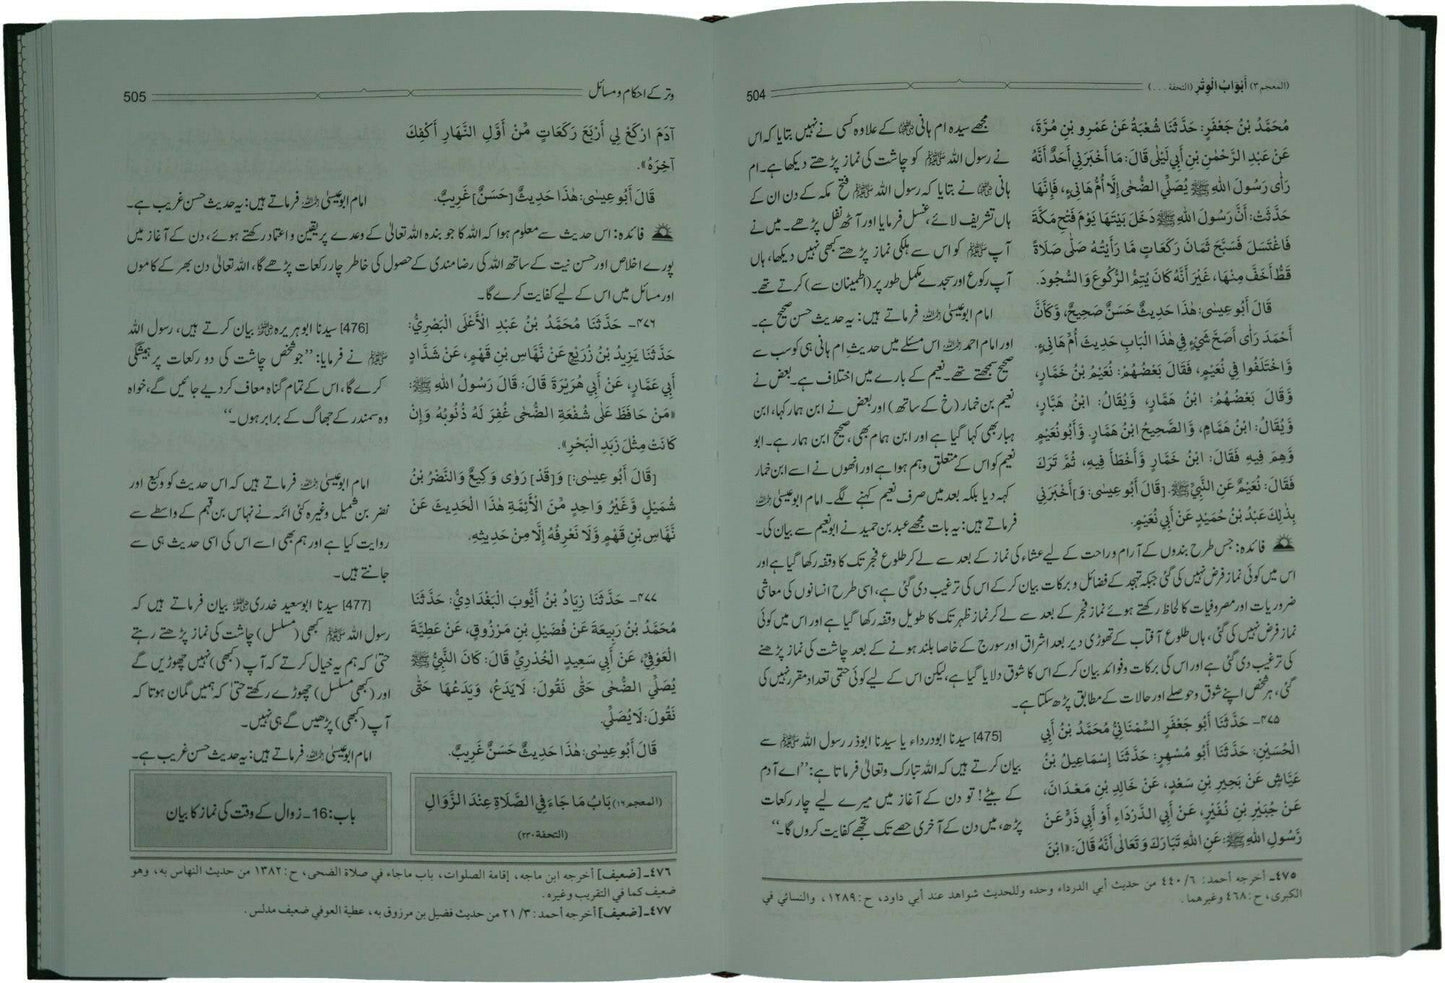 (المعجم ٣) أَبْوَابُ الْوِتْرِ (التحفة . . .)
504
مُحَمَّدُ بْنُ جَعْفَرٍ: حَدَّثَنَا شُعْبَةُ عَنْ عَمْرِو بْنِ مُرَّةَ،
عَنْ عَبْدِ الرَّحْمٰنِ بْنِ أَبِي لَيْلَى قَالَ: مَا أَخْبَرَنِي أَحَدٌ أَنَّهُ
رَأَى رَسُولَ اللهِ ﷺ يُصَلِّي الضُّحَى إِلَّا أُمُّ هَانِیءٍ، فَإِنَّهَا
حَدَّثَتْ: أَنَّ رَسُولَ اللهِ ﷺ دَخَلَ بَيْتَهَا يَوْمَ فَتْحِ مَكَّةَ
فَاغْتَسَلَ فَسَبَّحَ ثَمَانَ رَكَعَاتٍ مَا رَأَيْتُهُ صَلَّى صَلَاةً
قَطُّ أَخَفَّ مِنْهَا، غَيْرَ أَنَّهُ كَانَ يُتِمُّ الرُّكُوعَ وَالسُّجُودَ.
قَالَ أَبُو عِيسَى: هٰذَا حَدِيثٌ حَسَنٌ صَحِيحٌ، وَكَأَنَّ
أَحْمَدَ رَأَى أَصَحَّ شَيْءٍ فِي هٰذَا الْبَابِ حَدِيثَ أُمِّ هَانِیءٍ.
وَاخْتَلَفُوا فِي نُعَيْمٍ، فَقَالَ بَعْضُهُمْ: نُعَيْمُ بْنُ خَمَّارٍ،
وَقَالَ بَعْضُهُمُ: ابْنُ هَمَّارٍ، وَيُقَالُ: ابْنُ هَبَّارٍ،
وَيُقَالُ: ابْنُ هَمَّامٍ، وَالصَّحِيحُ ابْنُ هَمَّارٍ. وَأَبُو نُعَيْمٍ
وَهِمَ فِيهِ فَقَالَ: ابْنُ خَمَّارٍ وَأَخْطَأَ فِيهِ، ثُمَّ تَرَكَ
فَقَالَ: نُعَيْمٌ عَنِ النَّبِيِّ ﷺ. [قَالَ أَبُو عِيسَى: وَ] أَخْبَرَنِي
بِذٰلِكَ عَبْدُ بْنُ حُمَيْدٍ عَنْ أَبِي نُعَيْمٍ.
مجھے سیدہ ام ہانی رضی اللہ عنہا کے علاوہ کسی نے نہیں بتایا کہ اس
نے رسول اللہ ﷺ کو چاشت کی نماز پڑھتے دیکھا ہے۔ ام
ہانی رضی اللہ عنہا نے بتایا کہ رسول اللہ ﷺ فتح مکہ کے دن ان کے
ہاں تشریف لائے، غسل فرمایا اور آٹھ نفل پڑھے۔ میں نے
آپ ﷺ کو اس سے ہلکی نماز پڑھتے کبھی نہیں دیکھا، ہاں
آپ رکوع اور سجدے مکمل طور پر (اطمینان سے) کرتے تھے۔
امام ابوعیسیٰ رحمہ اللہ فرماتے ہیں: یہ حدیث حسن صحیح ہے۔
اور امام احمد رحمہ اللہ اس مسئلے میں حدیثِ ام ہانی ہی کو سب سے
صحیح سمجھتے تھے۔ نعیم کے بارے میں اختلاف ہے۔ بعض نے
نعیم بن خمار (خ کے ساتھ) اور بعض نے ابن ہمار کہا، ابن
ہبار بھی کہا گیا ہے اور ابن ہمام بھی، صحیح ابن ہمار ہے۔ ابو
نعیم کو اس کے متعلق وہم ہوا ہے اور انھوں نے اسے ابن خمار
کہہ دیا بلکہ بعد میں صرف نعیم کہنے لگے۔ امام ابوعیسیٰ رحمہ اللہ
فرماتے ہیں: یہ بات مجھے عبد بن حمید نے ابونعیم سے بیان کی۔
فائدہ: جس طرح بندوں کے آرام و راحت کے لیے عشاء کی نماز کے بعد سے لے کر طلوع فجر تک کا وقفہ رکھا گیا ہے اور
اس میں کوئی نماز فرض نہیں کی گئی جبکہ تہجد کے فضائل و برکات بیان کر کے اس کی ترغیب دی گئی ہے، اسی طرح انسانوں کی معاشی
ضروریات اور مصروفیات کا لحاظ رکھتے ہوئے نماز فجر کے بعد سے لے کر نماز ظہر تک کا طویل وقفہ رکھا گیا ہے اور اس میں کوئی
نماز فرض نہیں کی گئی، ہاں طلوع آفتاب کے تھوڑی دیر بعد اشراق اور سورج کے خاصا بلند ہونے کے بعد چاشت کی نماز پڑھنے
کی ترغیب دی گئی ہے اور اس کی برکات و فوائد بیان کر کے اس کا شوق دلایا گیا ہے، لیکن اس کے لیے کوئی حتمی تعداد مقرر نہیں کی
گئی، ہر شخص اپنے شوق و حوصلے اور حالات کے مطابق پڑھ سکتا ہے۔
٤٧٥- حَدَّثَنَا أَبُو جَعْفَرٍ السِّمْنَانِيُّ مُحَمَّدُ بْنُ أَبِي
الْحُسَيْنِ: حَدَّثَنَا أَبُو مُسْهِرٍ: حَدَّثَنَا إِسْمَاعِيلُ بْنُ
عَيَّاشٍ عَنْ بَحِيرِ بْنِ سَعْدٍ، عَنْ خَالِدِ بْنِ مَعْدَانَ،
عَنْ جُبَيْرِ بْنِ نُفَيْرٍ، عَنْ أَبِي الدَّرْدَاءِ أَوْ أَبِي ذَرٍّ عَنْ
رَّسُولِ اللهِ ﷺ: عَنِ اللهِ تَبَارَكَ وَتَعَالَى أَنَّهُ قَالَ: «ابْنَ
[475] سیدنا ابودرداء یا سیدنا ابوذر رسول اللہ ﷺ سے
بیان کرتے ہیں کہ اللہ تبارک وتعالیٰ فرماتا ہے: ’’اے آدم
کے بیٹے! تو دن کے آغاز میں میرے لیے چار رکعات
پڑھ، میں دن کے آخری حصے تک تجھے کفایت کروں گا۔‘‘
٤٧٥- أخرجه أحمد: ٦/ ٤٤٠ من حديث أبي الدرداء وحده وللحديث شواهد عند أبي داود، ح: ١٢٨٩، والنسائي في
الكبرى، ح: ٤٦٨ وغيرهما.
وتر کے احکام و مسائل
505
آدَمَ ارْكَعْ لِي أَرْبَعَ رَكَعَاتٍ مِّنْ أَوَّلِ النَّهَارِ أَكْفِكَ
آخِرَهُ».
قَالَ أَبُو عِيسَى: هٰذَا حَدِيثٌ [حَسَنٌ] غَرِيبٌ.
امام ابوعیسیٰ رحمہ اللہ فرماتے ہیں: یہ حدیث حسن غریب ہے۔
فائدہ: اس حدیث سے معلوم ہوا کہ اللہ کا جو بندہ اللہ تعالیٰ کے وعدے پر یقین و اعتماد رکھتے ہوئے، دن کے آغاز میں
پورے اخلاص اور حسن نیت کے ساتھ اللہ کی رضامندی کے حصول کی خاطر چار رکعات پڑھے گا، اللہ تعالیٰ دن بھر کے کاموں
اور مسائل میں اس کے لیے کفایت کرے گا۔
٤٧٦- حَدَّثَنَا مُحَمَّدُ بْنُ عَبْدِ الْأَعْلَى الْبَصْرِيُّ:
حَدَّثَنَا يَزِيدُ بْنُ زُرَيْعٍ عَنْ نَّهَّاسِ بْنِ قَهْمٍ، عَنْ شَدَّادٍ
أَبِي عَمَّارٍ، عَنْ أَبِي هُرَيْرَةَ قَالَ: قَالَ رَسُولُ اللهِ ﷺ:
«مَنْ حَافَظَ عَلَى شُفْعَةِ الضُّحَى غُفِرَ لَهُ ذُنُوبُهُ وَإِنْ
كَانَتْ مِثْلَ زَبَدِ الْبَحْرِ».
[قَالَ أَبُو عِيسَى:] وَ[قَدْ] رَوَى وَكِيعٌ وَالنَّضْرُ بْنُ
شُمَيْلٍ وَّغَيْرُ وَاحِدٍ مِّنَ الْأَئِمَّةِ هٰذَا الْحَدِيثَ عَنْ
نَّهَّاسِ بْنِ قَهْمٍ وَّلَا نَعْرِفُهُ إِلَّا مِنْ حَدِيثِهِ.
[476] سیدنا ابوہریرہ رضی اللہ عنہ بیان کرتے ہیں، رسول اللہ
ﷺ نے فرمایا: ’’جو شخص چاشت کی دو رکعات پر ہمیشگی
کرے گا، اس کے تمام گناہ معاف کر دیے جائیں گے، خواہ
وہ سمندر کے جھاگ کے برابر ہوں۔‘‘
امام ابوعیسیٰ رحمہ اللہ فرماتے ہیں کہ اس حدیث کو وکیع اور
نضر بن شمیل وغیرہ کئی ائمہ نے نہاس بن قہم کے واسطے سے
روایت کیا ہے اور ہم بھی اسے اس کی اسی حدیث ہی سے
جانتے ہیں۔
٤٧٧- حَدَّثَنَا زِيَادُ بْنُ أَيُّوبَ الْبَغْدَادِيُّ: حَدَّثَنَا
مُحَمَّدُ بْنُ رَبِيعَةَ عَنْ فُضَيْلِ بْنِ مَرْزُوقٍ، عَنْ عَطِيَّةَ
الْعَوْفِيِّ، عَنْ أَبِي سَعِيدٍ الْخُدْرِيِّ قَالَ: كَانَ النَّبِيُّ ﷺ
يُصَلِّي الضُّحَى حَتَّى نَقُولَ: لَا يَدَعُ، وَيَدَعُهَا حَتَّى
نَقُولَ: لَا يُصَلِّي.
قَالَ أَبُو عِيسَى: هٰذَا حَدِيثٌ حَسَنٌ غَرِيبٌ.
[477] سیدنا ابوسعید خدری رضی اللہ عنہ بیان فرماتے ہیں کہ
رسول اللہ ﷺ کبھی (مسلسل) چاشت کی نماز پڑھتے رہتے
حتیٰ کہ ہم یہ خیال کرتے کہ آپ (کبھی) نہیں چھوڑیں گے
اور (کبھی مسلسل) چھوڑے رکھتے حتیٰ کہ ہمیں گمان ہوتا کہ
آپ (کبھی) پڑھیں گے ہی نہیں۔
امام ابوعیسیٰ رحمہ اللہ فرماتے ہیں: یہ حدیث حسن غریب ہے۔
(المعجم ١٦) بَابُ مَا جَاءَ فِي الصَّلَاةِ عِنْدَ الزَّوَالِ
(التحفة ٢٣٠)
باب: 16۔ زوال کے وقت کی نماز کا بیان
٤٧٦- [ضعيف] أخرجه ابن ماجه، إقامة الصلوات، باب ماجاء في صلاة الضحى، ح: ١٣٨٢ من حديث النهاس به، وهو
ضعيف كما في التقريب وغيره.
٤٧٧- [ضعيف] أخرجه أحمد: ٣/ ٢١ من حديث فضيل بن مرزوق به، عطية العوفي ضعيف مدلس.